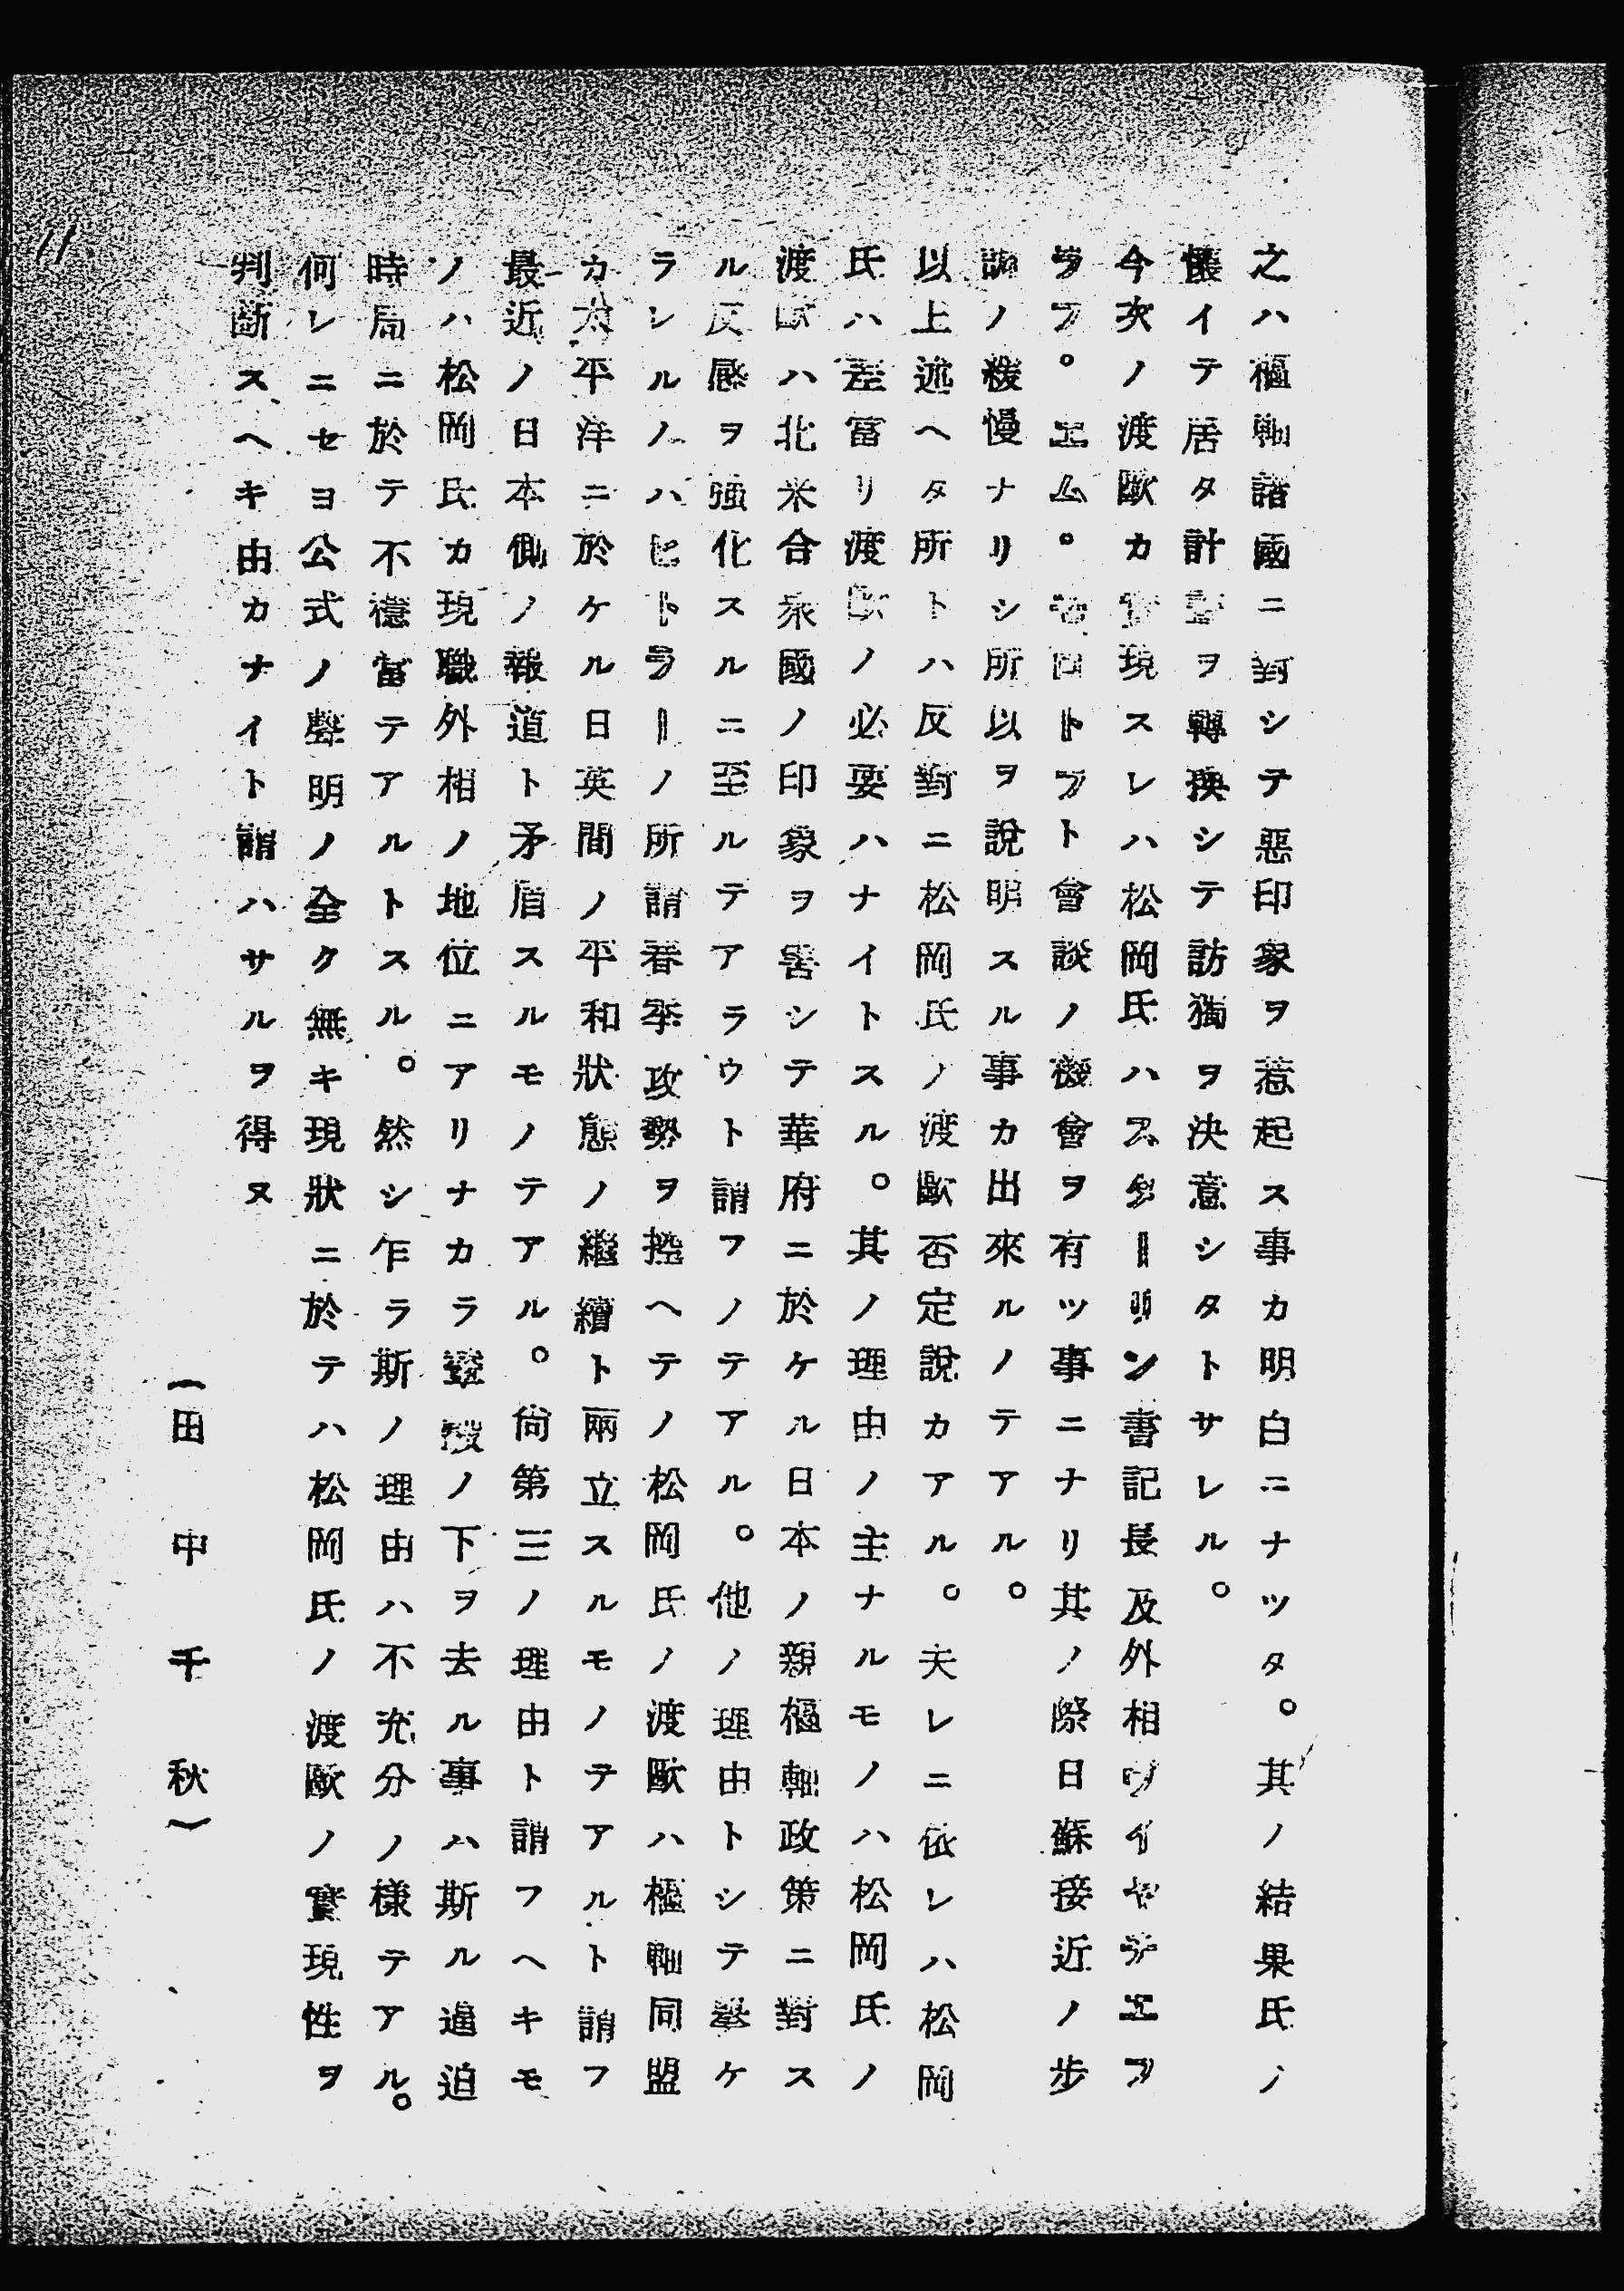 之ハ樞軸諸國ニ對シテ惡印象ヲ惹起ス事カ明白ニナツタ。其ノ結果氏ノ
懷イテ居タ計畫ヲ轉換シテ訪獨ヲ決意シタトサレル。
今次ノ渡歐カ實現スレハ松岡氏ハスターリン書記長及外相ヴイヤチエフ
ラフ。エム。モロトフト會談ノ機會ヲ有ツ事ニナリ其ノ際日蘇接近ノ步
調ノ緩慢ナリシ所以ヲ說明スル事カ出來ルノテアル。
以上述ヘタ所トハ反對ニ松岡氏ノ渡歐否定說カアル。夫レニ依レハ松岡
氏ハ差當リ渡歐ノ必要ハナイトスル。其ノ理由ノ主ナルモノハ松岡氏ノ
渡歐ハ北米合衆國ノ印象ヲ害シテ華府ニ於ケル日本ノ親樞軸政策ニ對ス
ル反感ヲ强化スルニ至ルテアラウト謂フノテアル。他ノ理由トシテ擧ケ
ラレルノハヒトラーノ所謂春季攻勢ヲ控ヘテノ松岡氏ノ渡歐ハ樞軸同盟
カ太平洋ニ於ケル日英間ノ平和狀態ノ繼續ト兩立スルモノテアルト謂フ
最近ノ日本側ノ報道ト矛盾スルモノテアル。尙第三ノ理由ト謂フヘキモ
ノハ松岡氏カ現職外相ノ地位ニアリナカラ輦轂ノ下ヲ去ル事ハ斯ル逼迫
時局ニ於テ不穩當テアルトスル。然シ乍ラ斯ノ理由ハ不充分ノ樣テアル。
何レニセヨ公式ノ聲明ノ全ク無キ現狀ニ於テハ松岡氏ノ渡歐ノ實現性ヲ
判斷スヘキ由カナイト謂ハサルヲ得ヌ
(田中千秋)
11